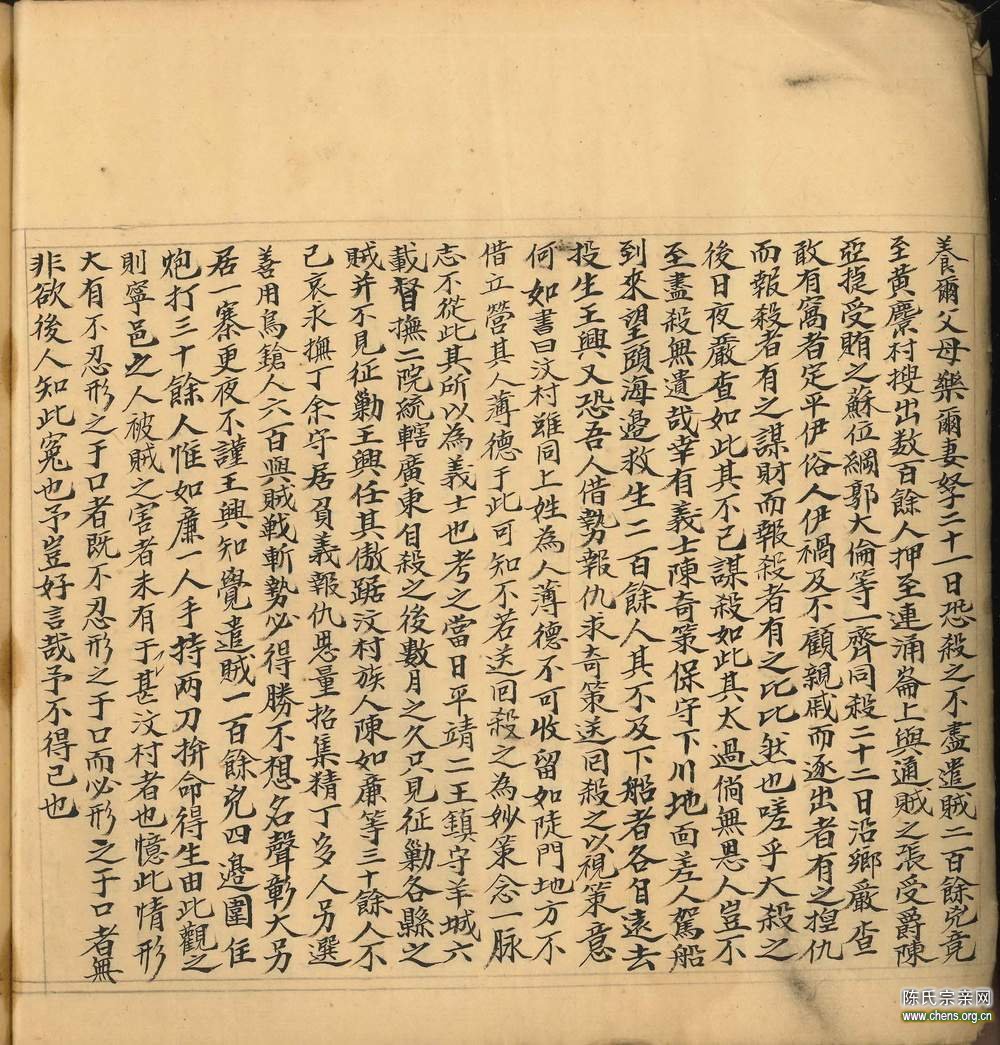 養爾父母藥爾妻孥二十一日恐殺之不盡遣賊二百餘兇竟
至黃麖村搜出数百餘人押至連涌崙上與通賊之張受爵陳
亞捷受賄之蘇位綱郭大倫等一齊同殺二十二日沿鄉嚴查
敢有窩者定平伊俗人伊禍及不顧親戚而逐出者有之揑仇
而報殺者有之謀財而報殺者有之比比然也嗟乎大殺之
後日夜嚴查如此其不已謀殺如此其太過倘無恩人豈不
至盡殺無遺哉幸有義士陳奇策保守下川地面差人駕船
到來望頭海邉救生二百餘人其不及下船者各自遠去
投生王興又恐吾人借勢報仇求奇策送回殺之以視策意
何如書曰汶村雖同上姓為人薄德不可收留如陡門地方不
借立營其人薄德于此可知不若送回殺之為妙策念一脉
志不從此其所以為義士也考之當日平靖二王鎮守羊城六
載督撫二院統轄廣東自殺之後數月之久只見征勦各縣之
賊并不見征勦王興任其傲踞汶村族人陳如廉等三十餘人不
已哀求撫丁余守居負義報仇恩量招集精丁多人另選
善用鳥鎗人六百與賊戰斬勢必得勝不想名聲彰大另
居一寨更夜不謹王興知覺遣賊一百餘兇四邉圍住
炮打三十餘人惟如廉一人手持两刀拚命得生由此觀之
則寧邑之人被賊之害者未有于甚汶村者也憶此情形
大有不忍形之于口者既不忍形之于口而必形之于口者無
非欲後人知此冤也予豈好言哉予不得已也
陈氏宗亲网
www.chens.org.cn